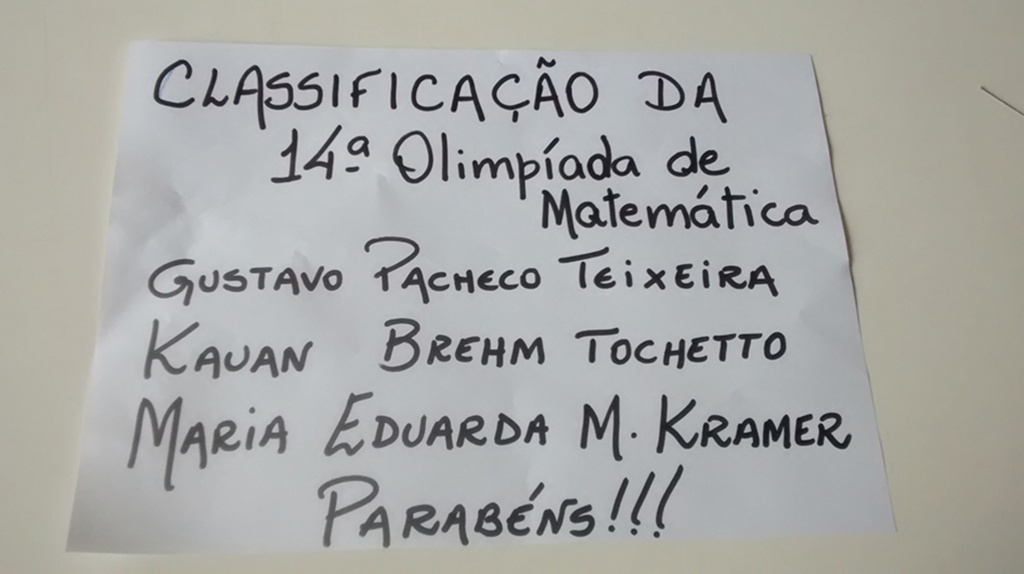 CLASSIFICAÇÃO DA
14ª Olimpíada de
Matemática
GUSTAVO PACHECO TEIXEIRA
KAUAN BREHM TOCHETTO
MARIA EDUARDA M. KRAMER
PARABÉNS!!!